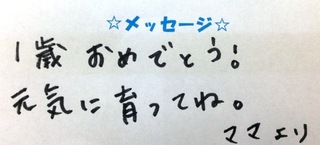 ☆メッセージ☆
1歳 おめでとう!
元気に育ってね。
ママより